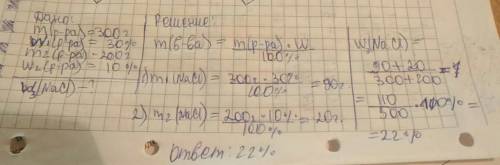 Дано:
m(р-ра)=300г
w₁(р-ра)= 30%
m₂(р-ра)=200г
w₂(р-ра)= 10%
w₃(NaCl)-?
Решение:
m(в-ва)= m(р-ра)·W / 100%
1) m₁(NaCl)= 300г·30% / 100% = 90г.
2) m₂(NaCl)= 200г·10% / 100% =20г.
W₃(NaCl)=
90+20 / 300+200 =
= 110 / 500 ·100% =
=22%
Ответ: 22%